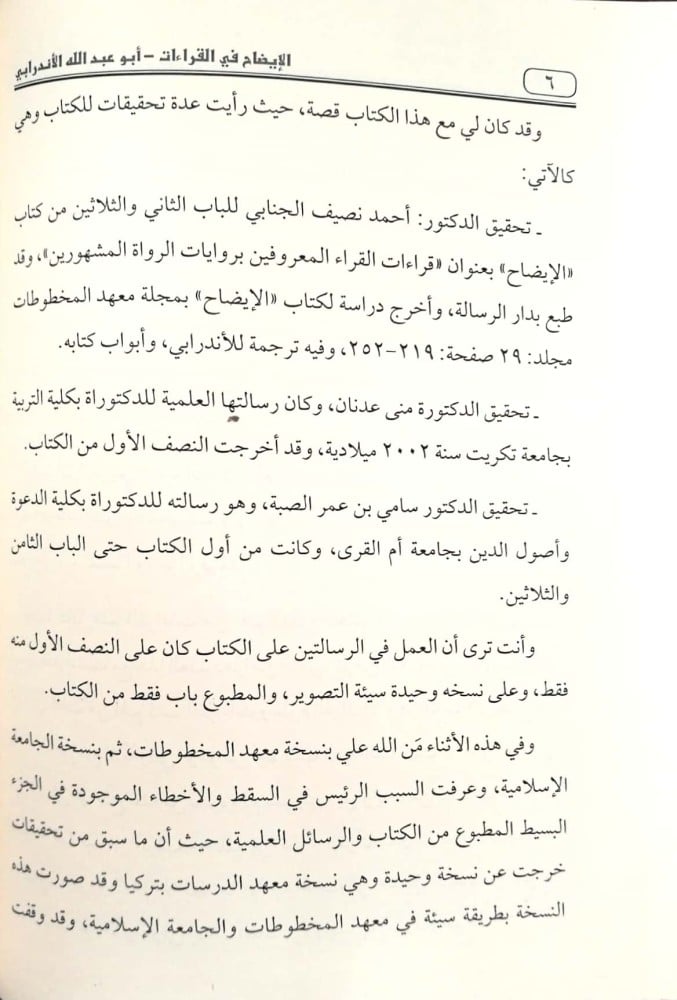 الإيضاح في القراءات - أبو عبد الله الأندرابي
٦
وقد كان لي مع هذا الكتاب قصة، حيث رأيت عدة تحقيقات للكتاب وهي
كالآتي:
ـ تحقيق الدكتور: أحمد نصيف الجنابي للباب الثاني والثلاثين من كتاب
«الإيضاح» بعنوان «قراءات القراء المعروفين بروايات الرواة المشهورين»، وقد
طبع بدار الرسالة، وأخرج دراسة لكتاب «الإيضاح» بمجلة معهد المخطوطات
مجلد: ٢٩ صفحة: ٢١٩-٢٥٢، وفيه ترجمة للأندرابي، وأبواب كتابه.
ـ تحقيق الدكتورة منى عدنان، وكان رسالتها العلمية للدكتوراة بكلية التربية
بجامعة تكريت سنة ٢٠٠٢ ميلادية، وقد أخرجت النصف الأول من الكتاب.
ـ تحقيق الدكتور سامي بن عمر الصبة، وهو رسالته للدكتوراة بكلية الدعوة
وأصول الدين بجامعة أم القرى، وكانت من أول الكتاب حتى الباب الثامن
والثلاثين.
وأنت ترى أن العمل في الرسالتين على الكتاب كان على النصف الأول منه
فقط، وعلى نسخه وحيدة سيئة التصوير، والمطبوع باب فقط من الكتاب.
وفي هذه الأثناء مَن الله علي بنسخة معهد المخطوطات، ثم بنسخة الجامعة
الإسلامية، وعرفت السبب الرئيس في السقط والأخطاء الموجودة في الجزء
البسيط المطبوع من الكتاب والرسائل العلمية، حيث أن ما سبق من تحقيقات
خرجت عن نسخة وحيدة وهي نسخة معهد الدرسات بتركيا وقد صورت هذه
النسخة بطريقة سيئة في معهد المخطوطات والجامعة الإسلامية، وقد وقفت